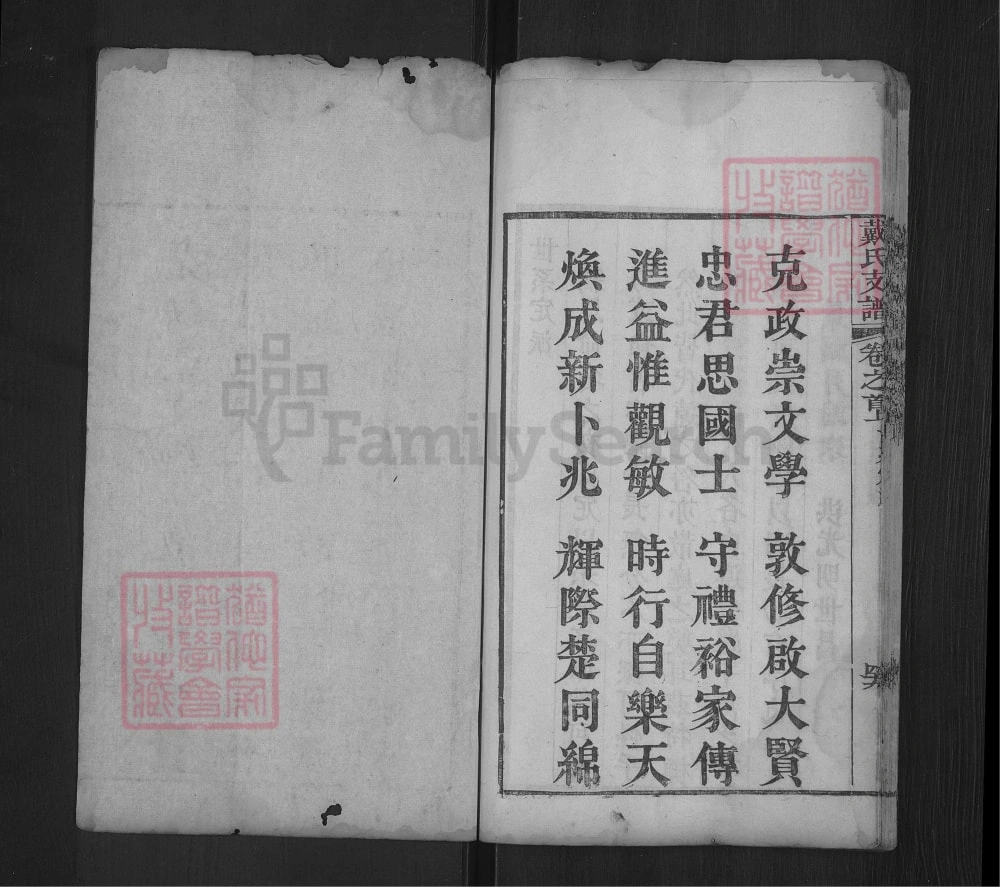 戴氏支譜 卷之首
克政崇文學 敦修啟大賢
忠君思國士 守禮裕家傳
進益惟觀敏 時行自樂天
煥成新卜兆 輝際楚同綿
FamilySearch